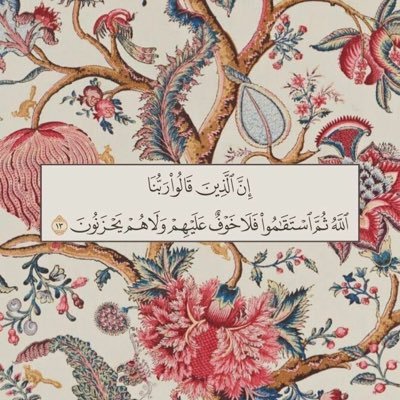 إِنَّ ٱلَّذِينَ قَالُوا۟ رَبُّنَا
ٱللَّهُ ثُمَّ ٱسْتَقَـٰمُوا۟ فَلَا خَوْفٌ عَلَيْهِمْ وَلَا هُمْ يَحْزَنُونَ ١٣